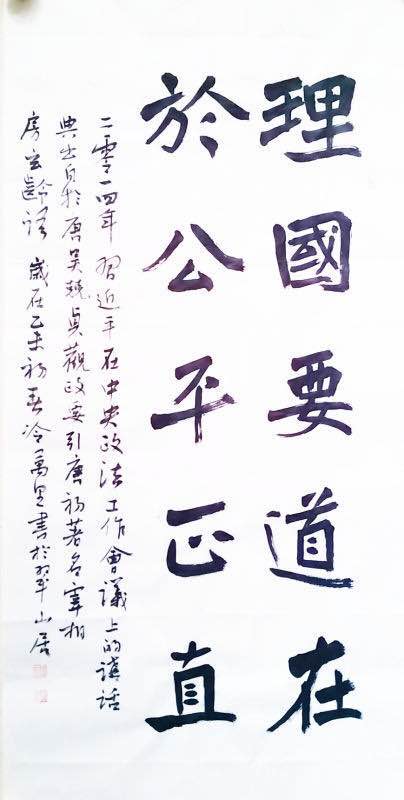 理國要道在
於公平正直
二零一四年習近平在中央政法工作會議上的講話
典出自於唐吳兢貞觀政要引唐初著名宰相
房玄齡語 歲在乙未初春冷萬里書於翠山居